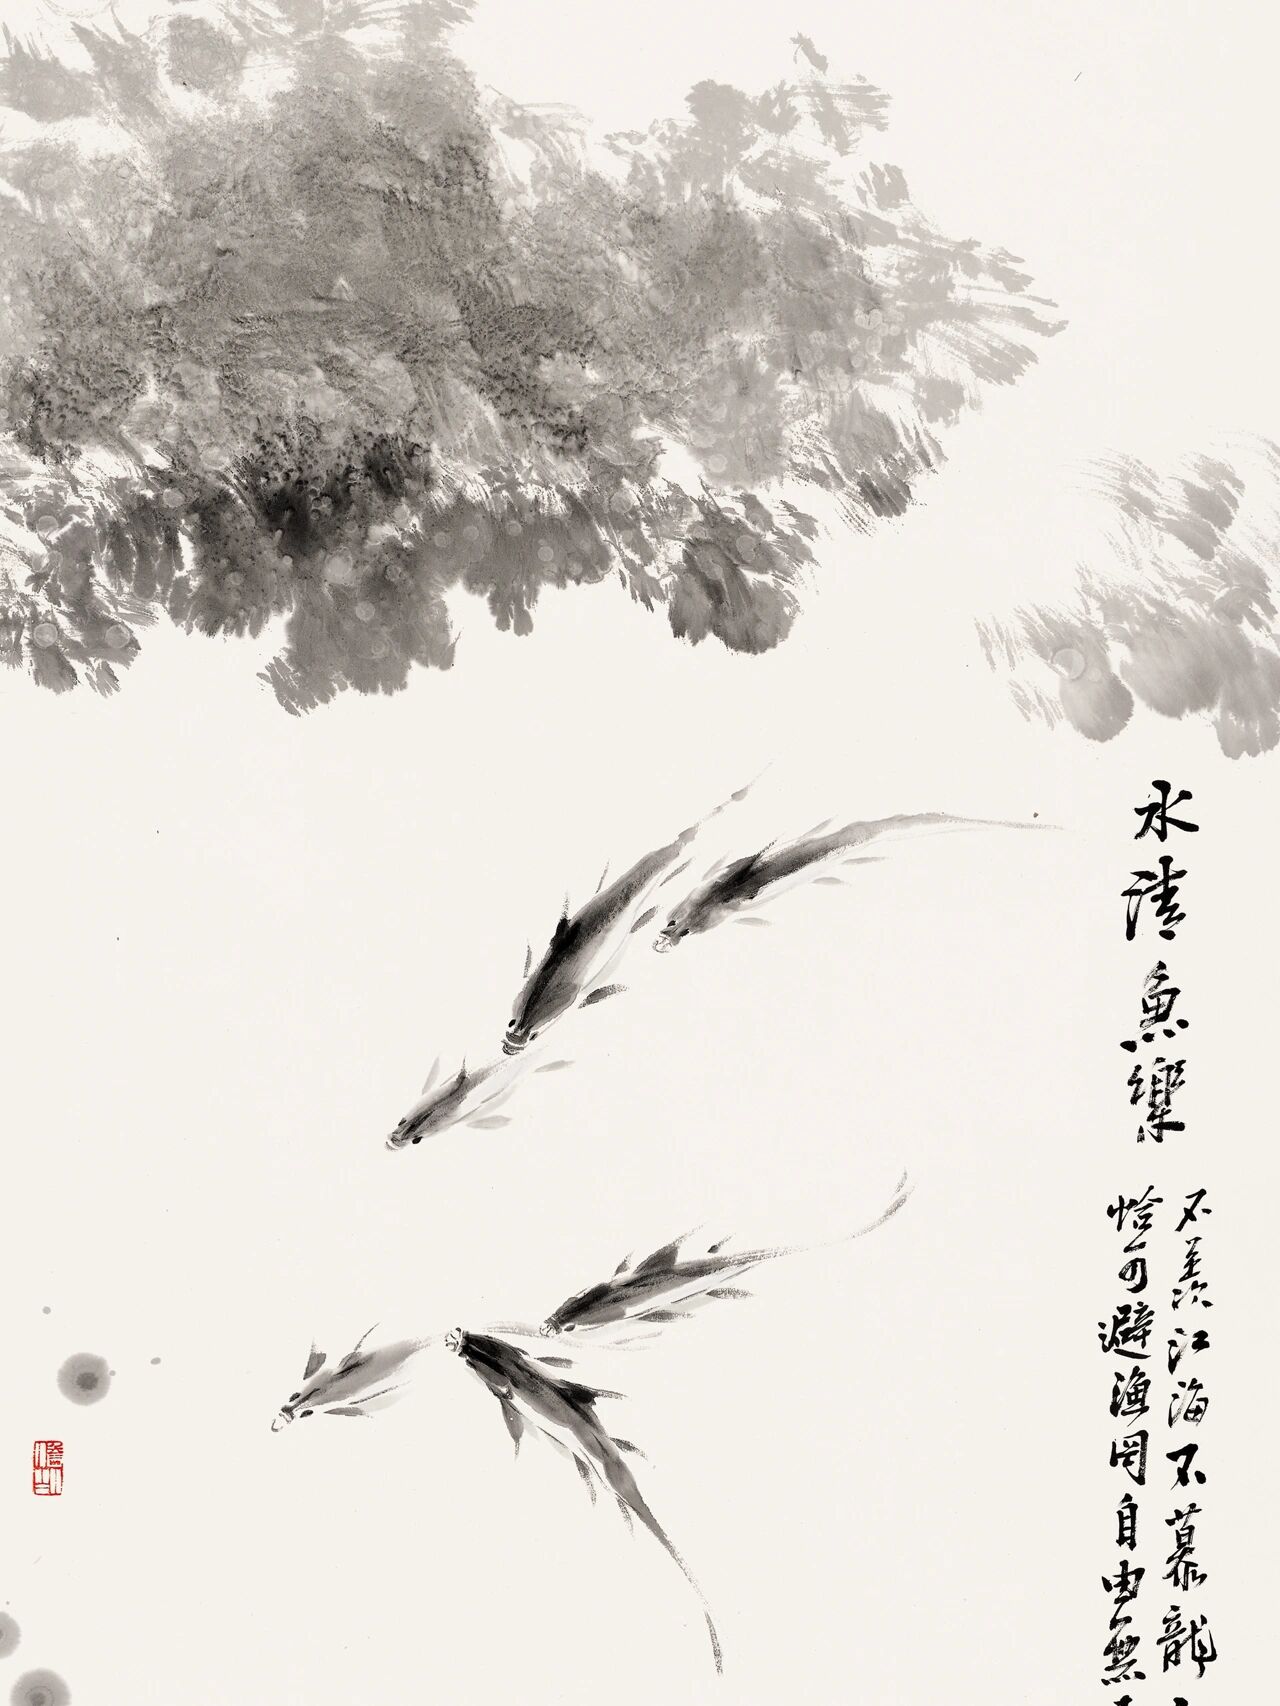 水清魚樂
不羨江海不慕龍
恰可避漁罔自由無